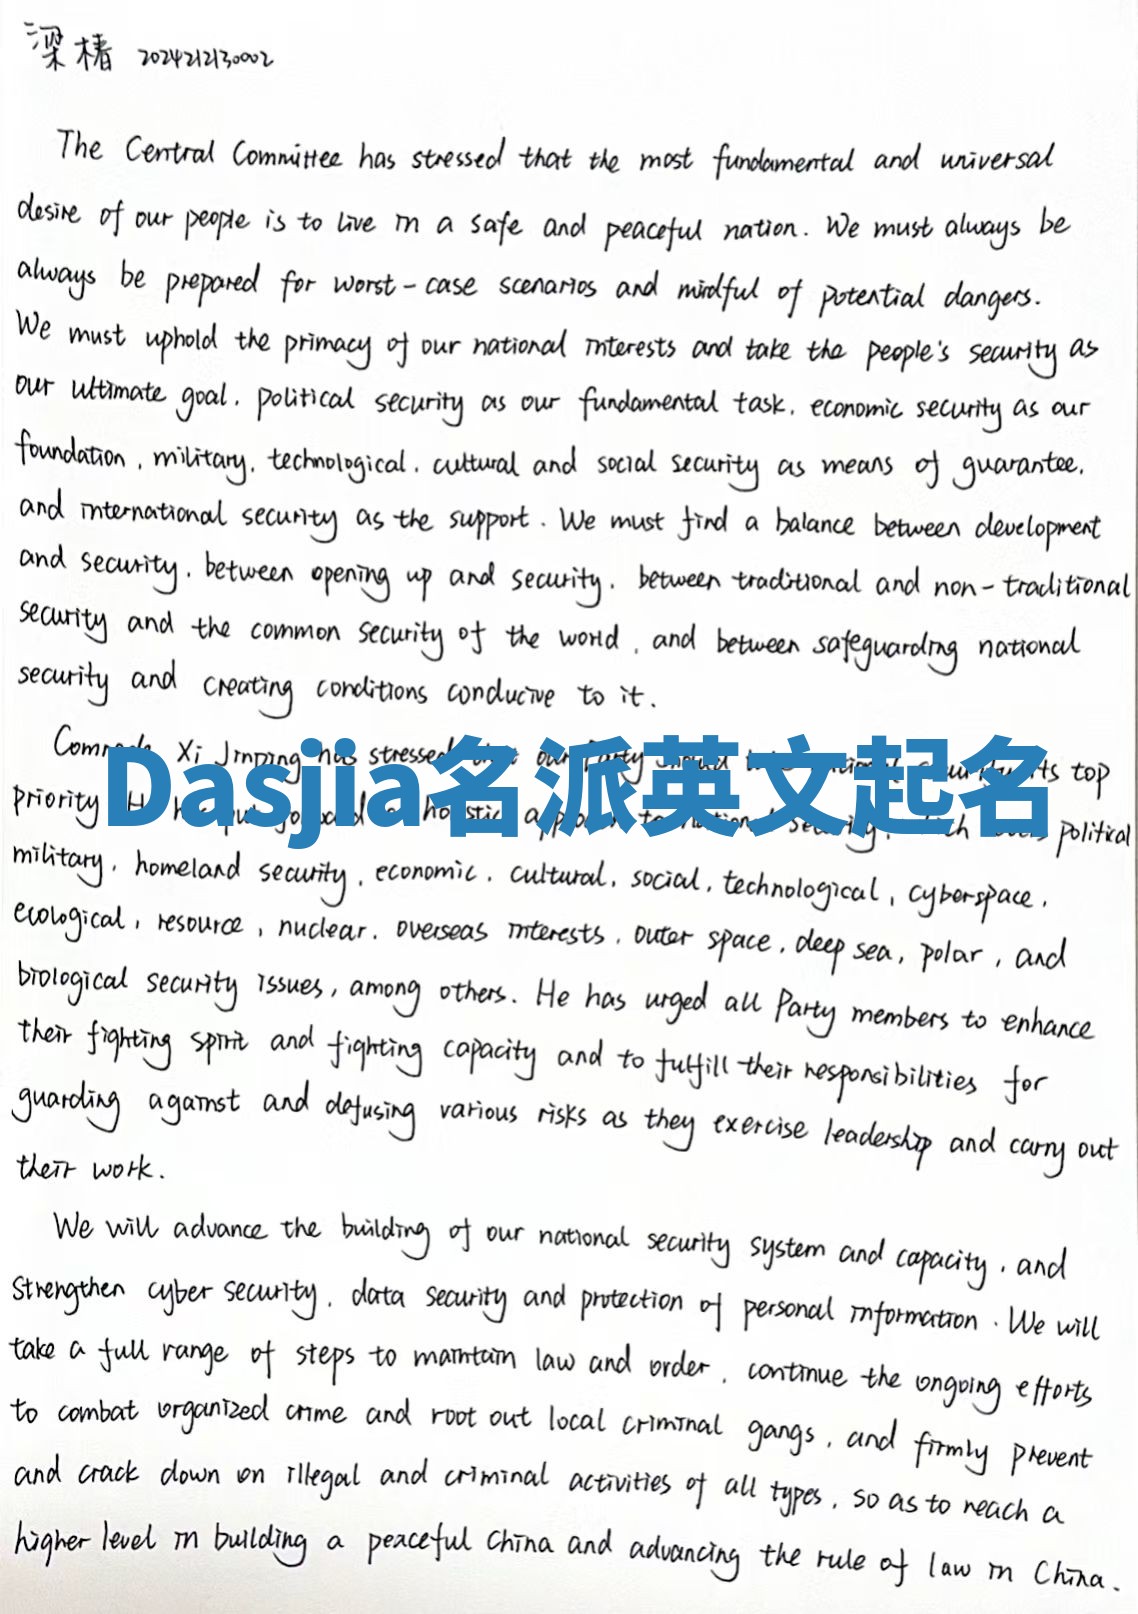 梁椿 2024212130002
The Central Committee has stressed that the most fundamental and universal
desire of our people is to live in a safe and peaceful nation. We must always be
always be prepared for worst-case scenarios and mindful of potential dangers.
We must uphold the primacy of our national interests and take the people's security as
our ultimate goal, political security as our fundamental task, economic security as our
foundation, military, technological, cultural and social security as means of guarantee,
and international security as the support. We must find a balance between development
and security, between opening up and security, between traditional and non-traditional
security and the common security of the world, and between safeguarding national
security and creating conditions conducive to it.
Xi Jinping has stressed our Party top
Dasjia名派英文起名
priority. political
military, homeland security, economic, cultural, social, technological, cyberspace,
ecological, resource, nuclear, overseas interests, outer space, deep sea, polar, and
biological security issues, among others. He has urged all Party members to enhance
their fighting spirit and fighting capacity and to fulfill their responsibilities for
guarding against and defusing various risks as they exercise leadership and carry out
their work.
We will advance the building of our national security system and capacity, and
strengthen cyber security, data security and protection of personal information. We will
take a full range of steps to maintain law and order, continue the ongoing efforts
to combat organized crime and root out local criminal gangs, and firmly prevent
and crack down on illegal and criminal activities of all types, so as to reach a
higher level in building a peaceful China and advancing the rule of law in China.